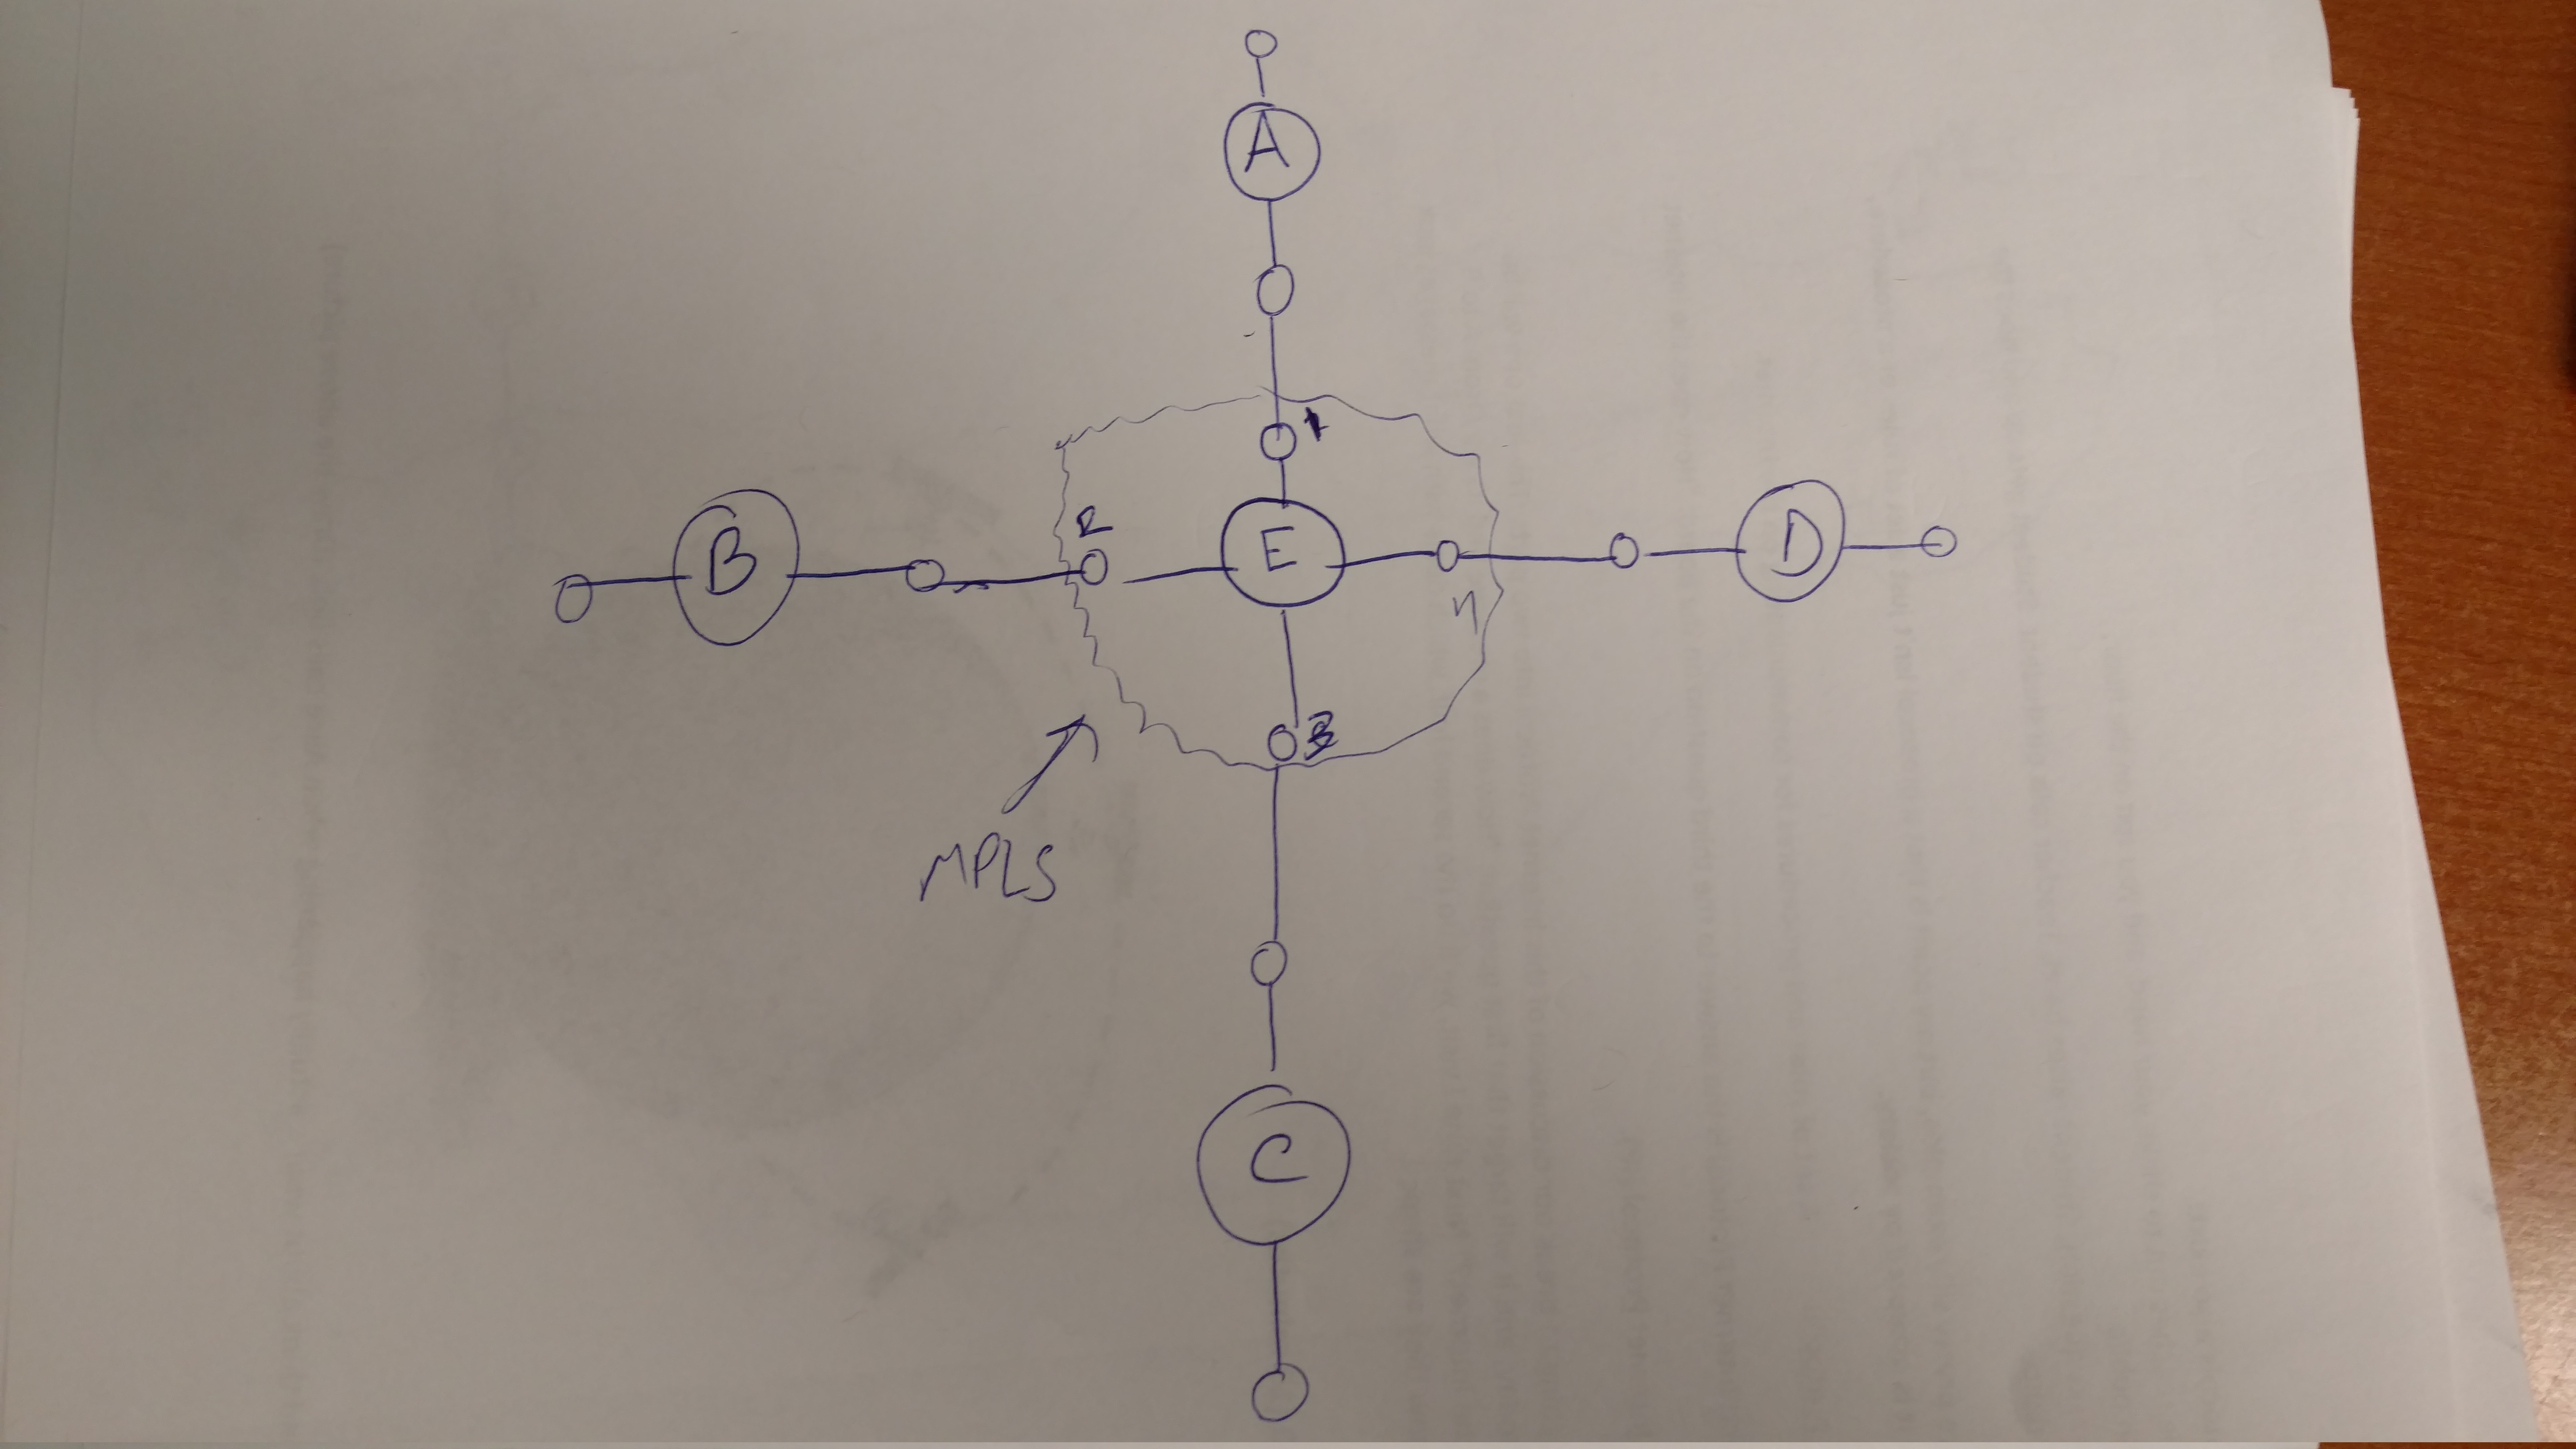 A
1
2
B
E
D
4
3
MPLS
C